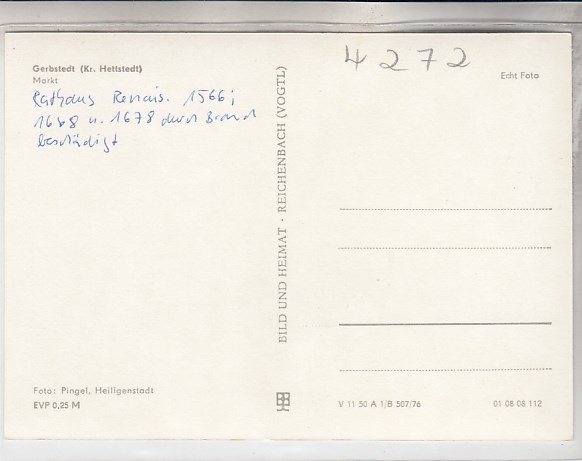 4272
Gerbstedt (Kr. Hettstedt)
Markt
Echt Foto
Rathaus Renais. 1566;
1668 u. 1678 durch Brand
beschädigt
BILD UND HEIMAT · REICHENBACH (VOGTL)
Foto: Pingel, Heiligenstadt
EVP 0,25 M
V 11 50 A 1/B 507/76
01 08 08 112